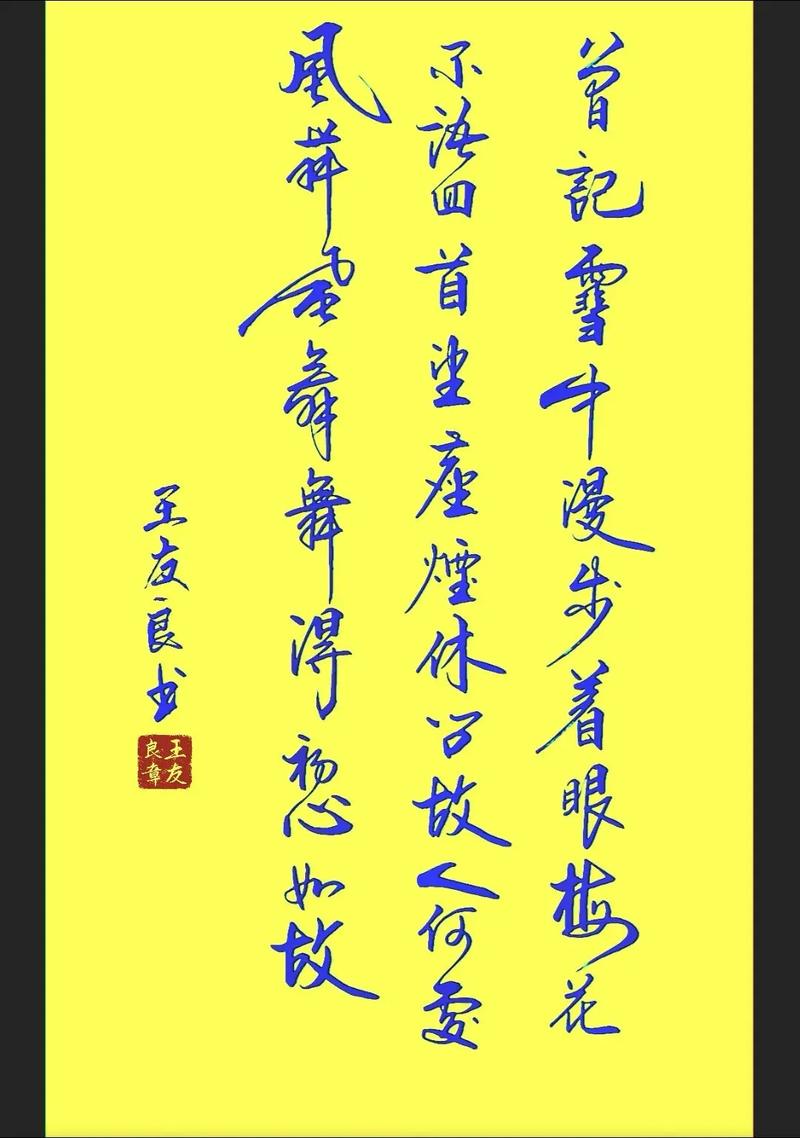 曾記雪中漫步着眼梅花
不語回首望塵煙休問故人何處
風華舞舞得初心如故
王友良书
王友良章